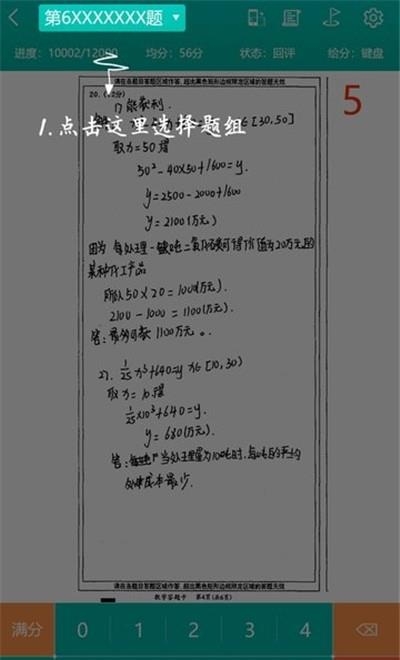 第6XXXXXXX题
进度：10002/12000 均分：56分 状态：回评 给分：键盘
请在各题目答题区域作答，超出黑色矩形边框限定区域的答案无效
20.（12分）
1) 能获利.
∈[30,50]
1.点击这里选择题组
5
取x=50得
50²-40×50+1600=y.
y=2500-2000+1600
y=2100(万元)
因为 每处理一吨二氧化碳可得价值为20万元的
某种化工产品
所以 50×20=1000(万元).
2100-1000=1100(万元)
答：最多可 1100万元。
2). 1/25 x³+640=y x∈[10,30)
取x=10得
1/25×10³+640=y.
y=680(万元).
答： 当处理量为100吨时,每吨的平均
处理成本最少.
请在各题目答题区域作答，超出黑色矩形边框限定区域的答案无效
数学答题卡 第4页(共6页)
满分 0 1 2 3 4